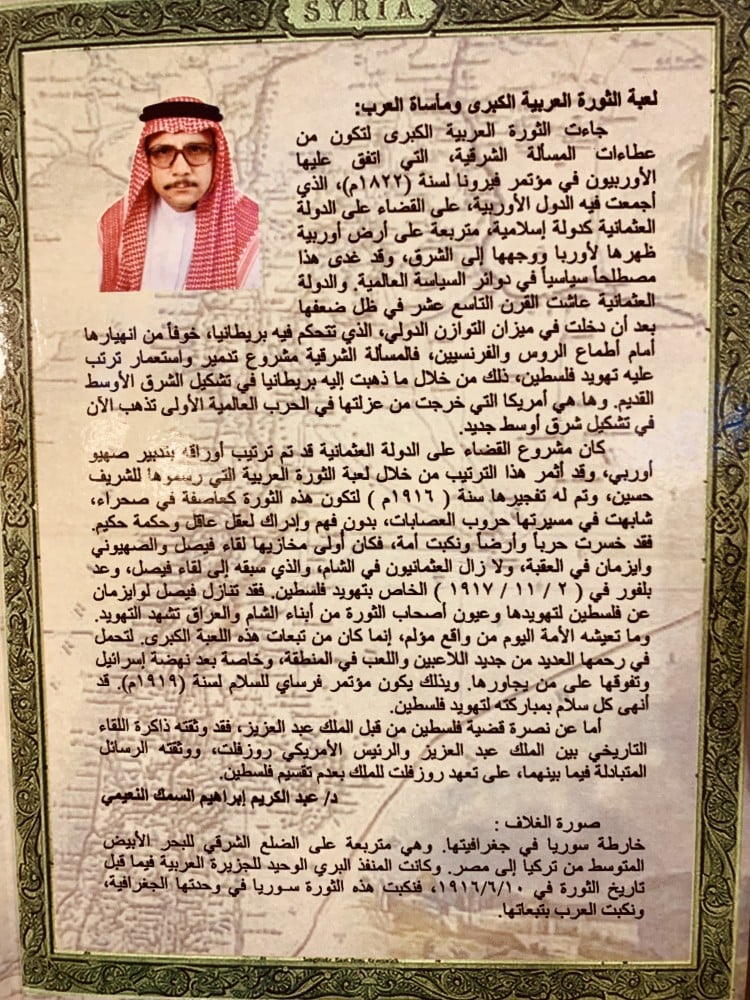 SYRIA.
لعبة الثورة العربية الكبرى ومأساة العرب:
جاءت الثورة العربية الكبرى لتكون من
عطاءات المسألة الشرقية، التي اتفق عليها
الأوربيون في مؤتمر فيرونا لسنة (١٨٢٢م)، الذي
أجمعت فيه الدول الأوربية، على القضاء على الدولة
العثمانية كدولة إسلامية، متربعة على أرض أوربية
ظهرها لأوربا ووجهها إلى الشرق، وقد غدى هذا
مصطلحاً سياسياً في دوائر السياسة العالمية. والدولة
العثمانية عاشت القرن التاسع عشر في ظل ضعفها
بعد أن دخلت في ميزان التوازن الدولي، الذي تتحكم فيه بريطانيا، خوفاً من انهيارها
أمام أطماع الروس والفرنسيين، فالمسألة الشرقية مشروع تدمير واستعمار ترتب
عليه تهويد فلسطين، ذلك من خلال ما ذهبت إليه بريطانيا في تشكيل الشرق الأوسط
القديم. وها هي أمريكا التي خرجت من عزلتها في الحرب العالمية الأولى تذهب الآن
في تشكيل شرق أوسط جديد.
كان مشروع القضاء على الدولة العثمانية قد تم ترتيب أوراقه بتدبير صهيو
أوربي، وقد أثمر هذا الترتيب من خلال لعبة الثورة العربية التي رسموها للشريف
حسين، وتم له تفجيرها سنة ( ١٩١٦م ) لتكون هذه الثورة كعاصفة في صحراء،
شابهت في مسيرتها حروب العصابات، بدون فهم وإدراك لعقل عاقل وحكمة حكيم.
فقد خسرت حرباً وأرضاً ونكبت أمة، فكان أولى مخازيها لقاء فيصل والصهيوني
وايزمان في العقبة، ولا زال العثمانيون في الشام، والذي سبقه إلى لقاء فيصل، وعد
بلفور في ( ٢ / ١١ / ١٩١٧ ) الخاص بتهويد فلسطين. فقد تنازل فيصل لوايزمان
عن فلسطين لتهويدها وعيون أصحاب الثورة من أبناء الشام والعراق تشهد التهويد.
وما تعيشه الأمة اليوم من واقع مؤلم، إنما كان من تبعات هذه اللعبة الكبرى. لتحمل
في رحمها العديد من جديد اللاعبين واللعب في المنطقة، وخاصة بعد نهضة إسرائيل
وتفوقها على من يجاورها. وبذلك يكون مؤتمر فرساي للسلام لسنة (١٩١٩م). قد
أنهى كل سلام بمباركته لتهويد فلسطين.
أما عن نصرة قضية فلسطين من قبل الملك عبد العزيز، فقد وثقته ذاكرة اللقاء
التاريخي بين الملك عبد العزيز والرئيس الأمريكي روزفلت، ووثقته الرسائل
المتبادلة فيما بينهما، على تعهد روزفلت للملك بعدم تقسيم فلسطين.
د/ عبد الكريم إبراهيم السمك النعيمي
صورة الغلاف :
خارطة سوريا في جغرافيتها. وهي متربعة على الضلع الشرقي للبحر الأبيض
المتوسط من تركيا إلى مصر. وكانت المنفذ البري الوحيد للجزيرة العربية فيما قبل
تاريخ الثورة في ١٩١٦/٦/١٠، فنكبت هذه الثورة سوريا في وحدتها الجغرافية،
ونكبت العرب بتبعاتها.